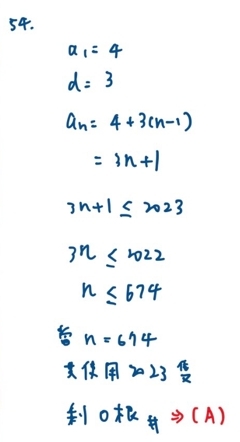 54.
a₁ = 4
d = 3
aₙ = 4 + 3(n-1)
= 3n+1
3n+1 ≤ 2023
3n ≤ 2022
n ≤ 674
當 n = 674
共使用 2023 隻
剩 0 根 # ⇒ (A)